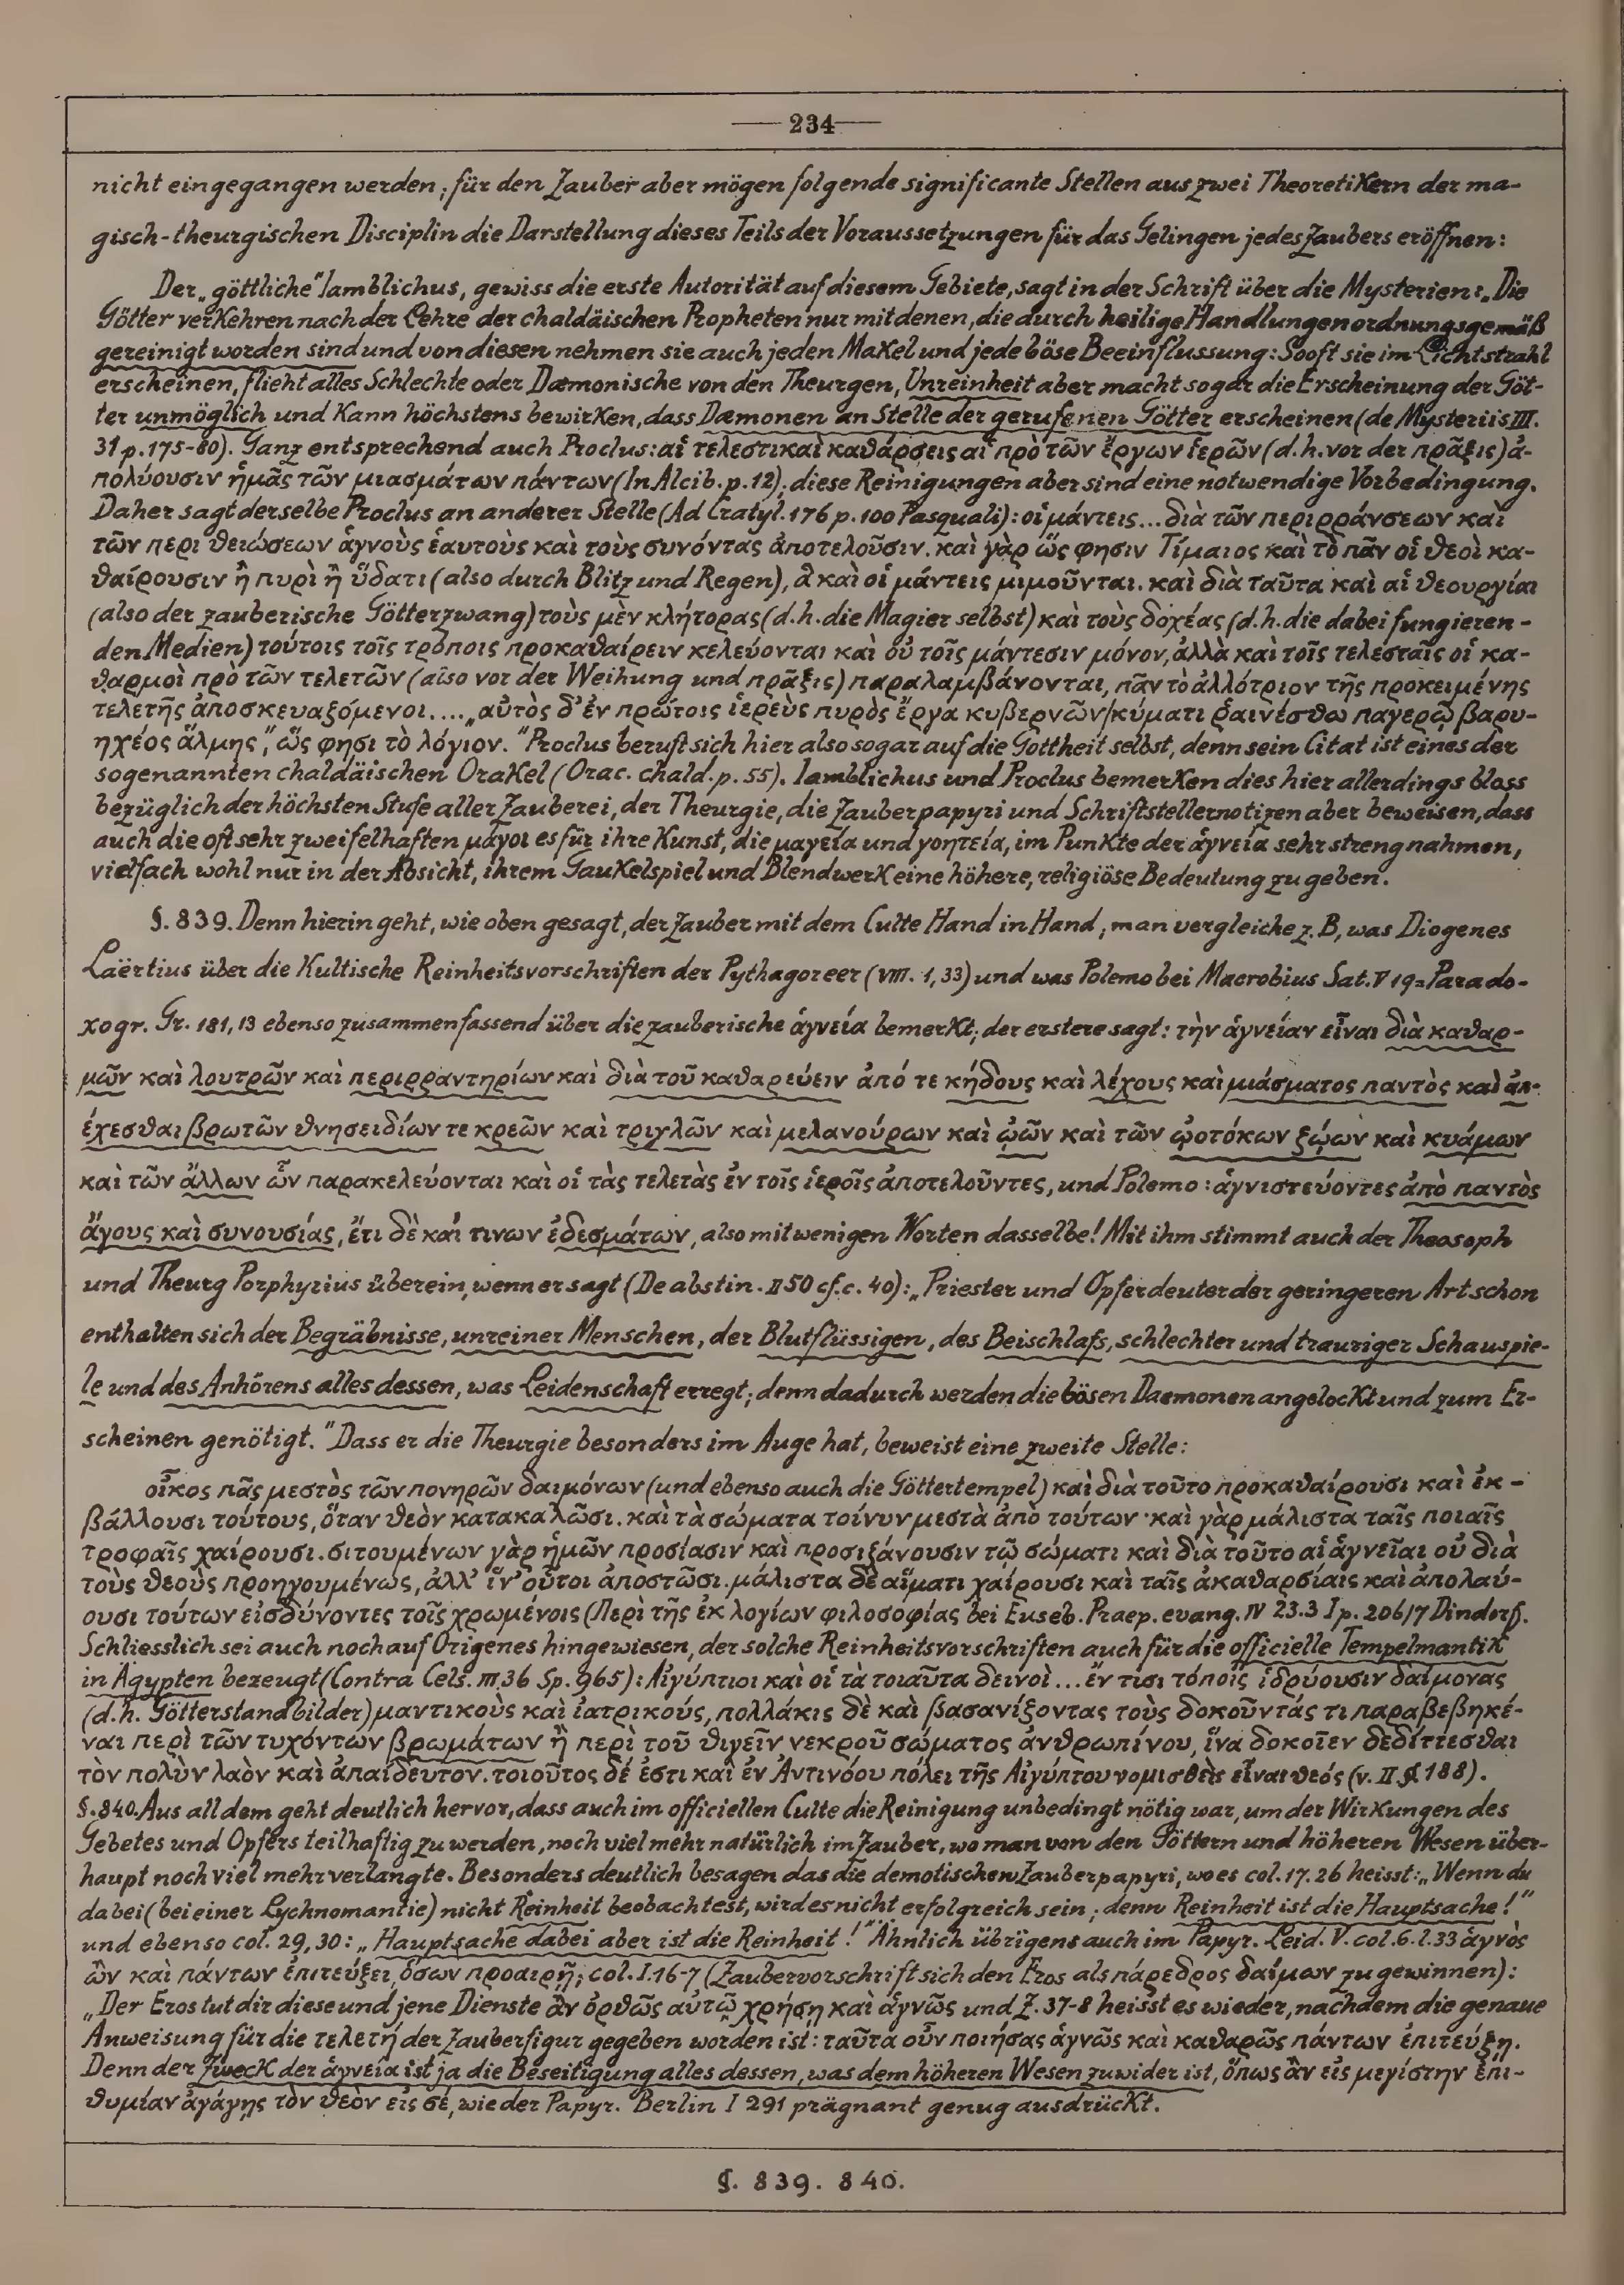 — 234 —
nicht eingegangen werden; für den Zauber aber mögen folgende significante Stellen aus zwei Theoretikern der ma-
gisch-theurgischen Disciplin die Darstellung dieses Teils der Voraussetzungen für das Gelingen jedes Zaubers eröffnen:
Der „göttliche" Iamblichus, gewiss die erste Autorität auf diesem Gebiete, sagt in der Schrift über die Mysterien: „Die
Götter verkehren nach der Lehre der chaldäischen Propheten nur mit denen, die durch heilige Handlungen ordnungsgemäß
gereinigt worden sind und von diesen nehmen sie auch jeden Makel und jede böse Beeinflussung: Sooft sie im Lichtstrahl
erscheinen, flieht alles Schlechte oder Dæmonische von den Theurgen, Unreinheit aber macht sogar die Erscheinung der Göt-
ter unmöglich und kann höchstens bewirken, dass Dæmonen an Stelle der gerufenen Götter erscheinen (de Mysteriis III.
31 p. 175-80). Ganz entsprechend auch Proclus: αἱ τελεστικαὶ καθάρσεις αἱ πρὸ τῶν ἔργων ἱερῶν (d.h. vor der πρᾶξις) ἀ-
πολύουσιν ἡμᾶς τῶν μιασμάτων πάντων (In Alcib. p. 12); diese Reinigungen aber sind eine notwendige Vorbedingung.
Daher sagt derselbe Proclus an anderer Stelle (Ad Cratyl. 176 p. 100 Pasquali): οἱ μάντεις... διὰ τῶν περιρράνσεων καὶ
τῶν περι θειώσεων ἁγνοὺς ἑαυτοὺς καὶ τοὺς συνόντας ἀποτελοῦσιν. καὶ γὰρ ὥς φησιν Τίμαιος καὶ τὸ πᾶν οἱ θεοὶ κα-
θαίρουσιν ἢ πυρὶ ἢ ὕδατι (also durch Blitz und Regen), ἃ καὶ οἱ μάντεις μιμοῦνται. καὶ διὰ ταῦτα καὶ αἱ θεουργίαι
(also der zauberische Götterzwang) τοὺς μὲν κλήτορας (d.h. die Magier selbst) καὶ τοὺς δοχέας (d.h. die dabei fungieren-
den Medien) τούτοις τοῖς τρόποις προκαθαίρειν κελεύονται καὶ οὐ τοῖς μάντεσιν μόνον, ἀλλὰ καὶ τοῖς τελεσταῖς οἱ κα-
θαρμοὶ πρὸ τῶν τελετῶν (also vor der Weihung und πρᾶξις) παραλαμβάνονται, πᾶν τὸ ἀλλότριον τῆς προκειμένης
τελετῆς ἀποσκευαζόμενοι.... „αὐτὸς δ' ἐν πρώτοις ἱερεὺς πυρὸς ἔργα κυβερνῶν / κύματι ῥαινέσθω παγερῷ βαρυ-
ηχέος ἅλμης", ὥς φησι τὸ λόγιον. "Proclus beruft sich hier also sogar auf die Gottheit selbst, denn sein Citat ist eines der
sogenannten chaldäischen Orakel (Orac. chald. p. 55). Iamblichus und Proclus bemerken dies hier allerdings bloss
bezüglich der höchsten Stufe aller Zauberei, der Theurgie, die Zauberpapyri und Schriftstellernotizen aber beweisen, dass
auch die oft sehr zweifelhaften μάγοι es für ihre Kunst, die μαγεία und γοητεία, im Punkte der ἁγνεία sehr streng nahmen,
vielfach wohl nur in der Absicht, ihrem Gaukelspiel und Blendwerk eine höhere, religiöse Bedeutung zu geben.
§. 839. Denn hierin geht, wie oben gesagt, der Zauber mit dem Culte Hand in Hand; man vergleiche z. B, was Diogenes
Laërtius über die kultische Reinheitsvorschriften der Pythagoreer (VIII. 1, 33) und was Polemo bei Macrobius Sat. V 19 = Parado-
xogr. Gr. 181, 13 ebenso zusammenfassend über die zauberische ἁγνεία bemerkt; der erstere sagt: τὴν ἁγνείαν εἶναι διὰ καθαρ-
μῶν καὶ λουτρῶν καὶ περιρραντηρίων καὶ διὰ τοῦ καθαρεύειν ἀπό τε κήδους καὶ λέχους καὶ μιάσματος παντὸς καὶ ἀπ-
έχεσθαι βρωτῶν θνησειδίων τε κρεῶν καὶ τριγλῶν καὶ μελανούρων καὶ ᾠῶν καὶ τῶν ᾠοτόκων ζῴων καὶ κυάμων
καὶ τῶν ἄλλων ὧν παρακελεύονται καὶ οἱ τὰς τελετὰς ἐν τοῖς ἱεροῖς ἀποτελοῦντες, und Polemo: ἁγνιστεύοντες ἀπὸ παντὸς
ἄγους καὶ συνουσίας, ἔτι δὲ καί τινων ἐδεσμάτων, also mit wenigen Worten dasselbe! Mit ihm stimmt auch der Theosoph
und Theurg Porphyrius überein, wenn er sagt (De abstin. II 50 cf. c. 40): „Priester und Opferdeuter der geringeren Art schon
enthalten sich der Begräbnisse, unreiner Menschen, der Blutflüssigen, des Beischlafs, schlechter und trauriger Schauspie-
le und des Anhörens alles dessen, was Leidenschaft erregt; denn dadurch werden die bösen Daemonen angelockt und zum Er-
scheinen genötigt." Dass er die Theurgie besonders im Auge hat, beweist eine zweite Stelle:
οἶκος πᾶς μεστὸς τῶν πονηρῶν δαιμόνων (und ebenso auch die Göttertempel) καὶ διὰ τοῦτο προκαθαίρουσι καὶ ἐκ-
βάλλουσι τούτους, ὅταν θεὸν κατακαλῶσι. καὶ τὰ σώματα τοίνυν μεστὰ ἀπὸ τούτων · καὶ γὰρ μάλιστα ταῖς ποιαῖς
τροφαῖς χαίρουσι. σιτουμένων γὰρ ἡμῶν προσίασιν καὶ προσιζάνουσιν τῷ σώματι καὶ διὰ τοῦτο αἱ ἁγνεῖαι οὐ διὰ
τοὺς θεοὺς προηγουμένως, ἀλλ' ἵν' οὗτοι ἀποστῶσι. μάλιστα δὲ αἵματι χαίρουσι καὶ ταῖς ἀκαθαρσίαις καὶ ἀπολαύ-
ουσι τούτων εἰσδύνοντες τοῖς χρωμένοις (Περὶ τῆς ἐκ λογίων φιλοσοφίας bei Euseb. Praep. evang. IV 23.3 I p. 206/7 Dindorf).
Schliesslich sei auch noch auf Origenes hingewiesen, der solche Reinheitsvorschriften auch für die officielle Tempelmantik
in Ägypten bezeugt (Contra Cels. III 36 Sp. 965): Αἰγύπτιοι καὶ οἱ τὰ τοιαῦτα δεινοὶ ... ἔν τισι τόποις ἱδρύουσιν δαίμονας
(d.h. Götterstandbilder) μαντικοὺς καὶ ἰατρικούς, πολλάκις δὲ καὶ βασανίζοντας τοὺς δοκοῦντάς τι παραβεβηκέ-
ναι περὶ τῶν τυχόντων βρωμάτων ἢ περὶ τοῦ θιγεῖν νεκροῦ σώματος ἀνθρωπίνου, ἵνα δοκοῖεν δεδίττεσθαι
τὸν πολὺν λαὸν καὶ ἀπαίδευτον. τοιοῦτος δέ ἐστι καὶ ἐν Ἀντινόου πόλει τῆς Αἰγύπτου νομισθεὶς εἶναι θεός (v. II § 188).
§. 840. Aus all dem geht deutlich hervor, dass auch im officiellen Culte die Reinigung unbedingt nötig war, um der Wirkungen des
Gebetes und Opfers teilhaftig zu werden, noch viel mehr natürlich im Zauber, wo man von den Göttern und höheren Wesen über-
haupt noch viel mehr verlangte. Besonders deutlich besagen das die demotischen Zauberpapyri, wo es col. 17. 26 heisst: „Wenn du
dabei (bei einer Lychnomantie) nicht Reinheit beobachtest, wird es nicht erfolgreich sein; denn Reinheit ist die Hauptsache!"
und ebenso col. 29, 30: „Hauptsache dabei aber ist die Reinheit!" Ähnlich übrigens auch im Papyr. Leid. V. col. 6. l. 33 ἁγνὸς
ὢν καὶ πάντων ἐπιτεύξει, ὅσων προαιρῇ; col. I. 16-7 (Zaubervorschrift sich den Eros als πάρεδρος δαίμων zu gewinnen):
„Der Eros tut dir diese und jene Dienste ἂν ὀρθῶς αὐτῷ χρήσῃ καὶ ἁγνῶς und Z. 37-8 heisst es wieder, nachdem die genaue
Anweisung für die τελετή der Zauberfigur gegeben worden ist: ταῦτα οὖν ποιήσας ἁγνῶς καὶ καθαρῶς πάντων ἐπιτεύξῃ.
Denn der Zweck der ἁγνεία ist ja die Beseitigung alles dessen, was dem höheren Wesen zuwider ist, ὅπως ἂν εἰς μεγίστην ἐπι-
θυμίαν ἀγάγῃς τὸν θεὸν εἰς σέ, wie der Papyr. Berlin I 291 prägnant genug ausdrückt.
§. 839. 840.